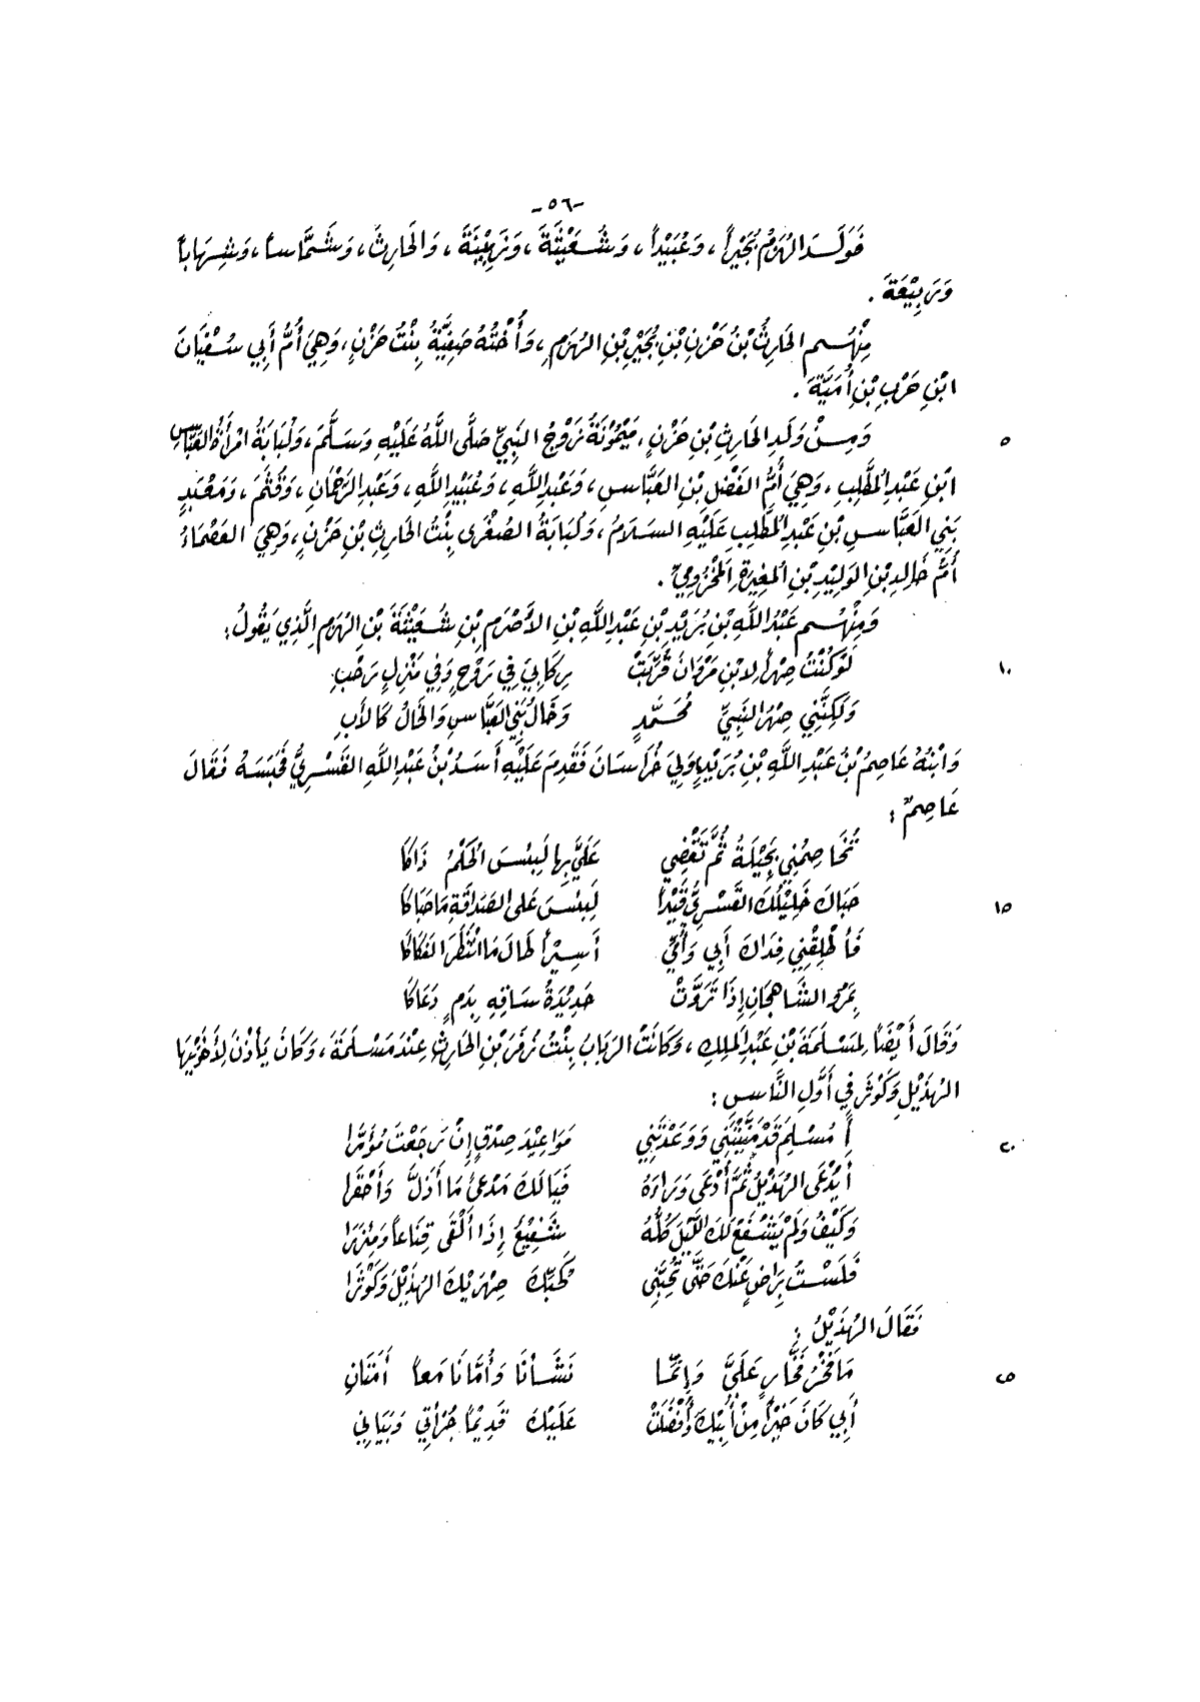 -٥٦-
فَوَلَدَ الهُزَمُ بُجَيْراً، وَعُبَيْداً، وَشُعَيْثَةَ، وَرُهَيْنَةَ، وَالحَارِثَ، وَشَمَّاساً، وَشِهَاباً
وَرَبِيْعَةَ.
مِنْهُم الحَارِثُ بْنُ حَزْنِ بْنِ بُجَيْرِ بْنِ الهُزَمِ، وَأُخْتُهُ صَفِيَّةُ بِنْتُ حَزْنٍ، وَهِيَ أُمُّ أَبِي سُفْيَانَ
ابْنِ حَرْبِ بْنِ أُمَيَّةَ.
وَمِنْ وَلَدِ الحَارِثِ بْنِ حَزْنٍ، مَيْمُونَةُ زَوْجُ النَّبِيِّ صَلَّى اللَّهُ عَلَيْهِ وَسَلَّمَ، وَلُبَابَةُ امْرَأَةُ العَبَّاسِ ٥
ابْنِ عَبْدِ المُطَّلِبِ، وَهِيَ أُمُّ الفَضْلِ بْنِ العَبَّاسِ، وَعَبْدِ اللَّهِ، وَعُبَيْدِ اللَّهِ، وَعَبْدِ الرَّحْمَانِ، وَقُثَمَ، وَمَعْبَدٍ
بَنِي العَبَّاسِ بْنِ عَبْدِ المُطَّلِبِ عَلَيْهِ السَلَامُ، وَلُبَابَةُ الصُغْرَى بِنْتُ الحَارِثِ بْنِ حَزْنٍ، وَهِيَ العَصْمَاءُ
أُمُّ خَالِدِ بْنِ الوَلِيْدِ بْنِ المُغِيْرَةِ المَخْزُومِيِّ.
وَمِنْهُم عَبْدُ اللَّهِ بْنِ يَزِيْدِ بْنِ عَبْدِ اللَّهِ بْنِ الأَصْرَمِ بْنِ شُعَيْثَةَ بْنِ الهُزَمِ الَّذِي يَقُولُ:
لَوْ كُنْتُ صِهْراً لِابْنِ مَرْوَانَ قُرِّبَتْ رِكَابِيَ فِي رَوْحٍ وَفِي مَنْزِلٍ رَحْبِ ١٠
وَلَكِنَّنِي صِهْرُ النَّبِيِّ مُحَمَّدٍ وَخَالُ بَنِي العَبَّاسِ وَالخَالُ كَالأَبِ
وَابْنُهُ عَاصِمُ بْنُ عَبْدِ اللَّهِ بْنِ يَزِيْدٍ وَلِيَ خُرَاسَانَ فَقَدِمَ عَلَيْهِ أَسَدُ بْنُ عَبْدِ اللَّهِ القَسْرِيُّ فَحَبَسَهُ فَقَالَ
عَاصِمٌ:
تُخَاصِمُنِي بَجِيْلَةُ ثُمَّ تَقْضِي عَلَيَّ بِهَا لَبِئْسَ الحُكْمُ ذَاكَا
حَبَاكَ خَلِيْلُكَ القَسْرِيُّ قَيْداً لَبِئْسَ عَلَى الصَدَاقَةِ مَا حَبَاكَا ١٥
فَأَطْلِقْنِي فِدَاكَ أَبِي وَأُمِّي أَسِيْراً طَالَ مَا انْتَظَرَ الفَكَاكَا
بِمَرْوِ الشَاهِجَانِ إِذَا تَرَوَّتْ حَدِيْدَةُ سَاقِهِ بِدَمٍ دَعَاكَا
وَقَالَ أَيْضَاً لِمَسْلَمَةَ بْنِ عَبْدِ المَلِكِ، وَكَانَتْ الرَبَابُ بِنْتُ زُفَرَ بْنِ الحَارِثِ عِنْدَ مَسْلَمَةَ، وَكَانَ يَأْذَنُ لِأَخَوَيْهَا
الهُذَيْلِ وَكَوْثَرَ فِي أَوَّلِ النَّاسِ:
أَمُسْلِمَ قَدْ مَنَّيْتَنِي وَوَعَدْتَنِي مَوَاعِيْدَ صِدْقٍ إِنْ رَجَعْتَ مُؤَمَّرَا ٢٠
أَيُدْعَى الهُذَيْلُ ثُمَّ أُدْعَى وَرَاءَهُ فَيَا لَكَ مَدْعَىً مَا أَذَلَّ وَأَحْقَرَا
وَكَيْفَ وَلَمْ يَشْفَعْ لَكَ اللَّيْلَ كُلَّهُ شَفِيْعٌ إِذَا أَلْقَى قِنَاعاً وَمِئْزَرَا
فَلَسْتُ بِرَاضٍ عَنْكَ حَتَّى تُحِبَّنِي كَحُبِّكَ صِهْرَيْكَ الهُذَيْلَ وَكَوْثَرَا
فَقَالَ الهُذَيْلُ:
مَا فَخْرُ فَخَّارٍ عَلَيَّ وَإِنَّمَا نَشَأْنَا وَأُمَّانَا مَعاً أَمَتَانِ ٢٥
أَبِي كَانَ خَيْراً مِنْ أَبِيْكَ وَأَفْضَلَتْ عَلَيْكَ قَدِيْماً جُرْأَتِي وَبَيَانِي